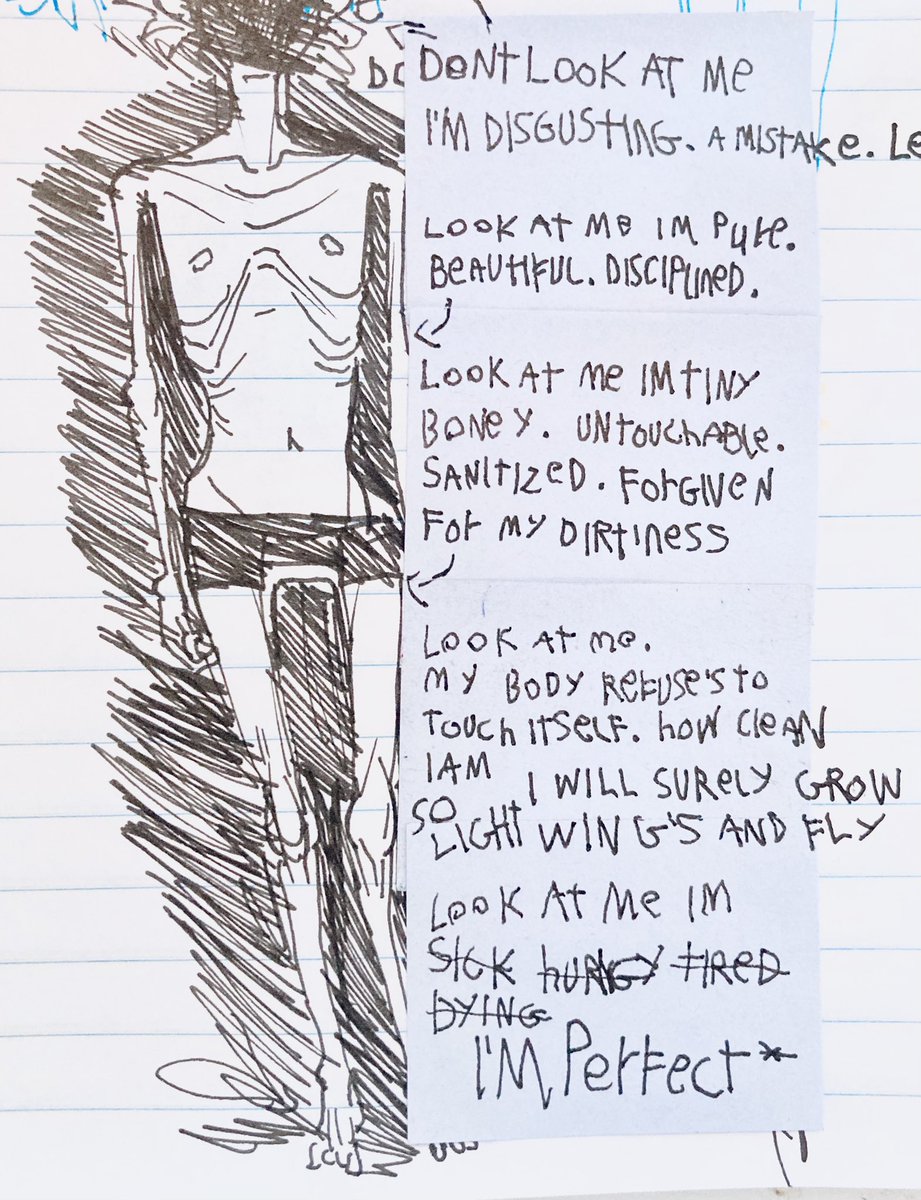 DONT LOOK AT ME
I'M DISGUSTING. A MISTAKE. LE
LOOK AT ME IM PURE.
BEAUTIFUL. DISCIPLINED.
LOOK AT ME IM TINY
BONEY. UNTOUCHABLE.
SANITIZED. FORGIVEN
FOR MY DIRTINESS
LOOK AT ME.
MY BODY REFUSE'S TO
TOUCH ITSELF. HOW CLEAN
I AM
SO LIGHT I WILL SURELY GROW
WING'S AND FLY
LOOK AT ME IM
SICK HUNGY TIRED
DYING
I'M PERFECT*